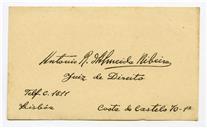 Antonio R. d'Almeida Ribeiro
Juiz de Direito
Telf. C. 1811
Lisbôa
Costa do Castelo 70-1º